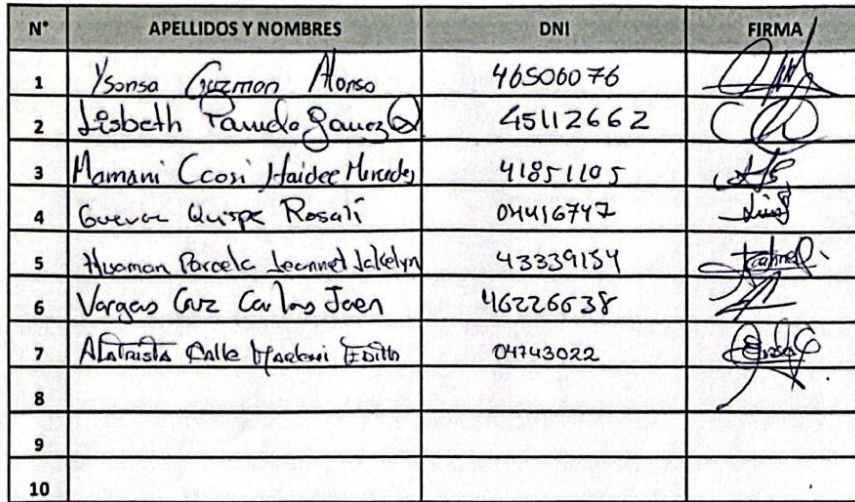 N° APELLIDOS Y NOMBRES DNI FIRMA
1 Ysonsa Guzmon Alonso 46506076
2 Lisbeth Pamela 45112662
3 Mamani Ccosi Haidee Mercedes 41851105
4 Guevar Quispe Rosali 04416747
5 Huaman Parcela Jeannet Jakelyn 43339154
6 Vargas Cruz Carlos Joen 46226638
7 Alatrista Calle Marleni Edith 04743022
8
9
10